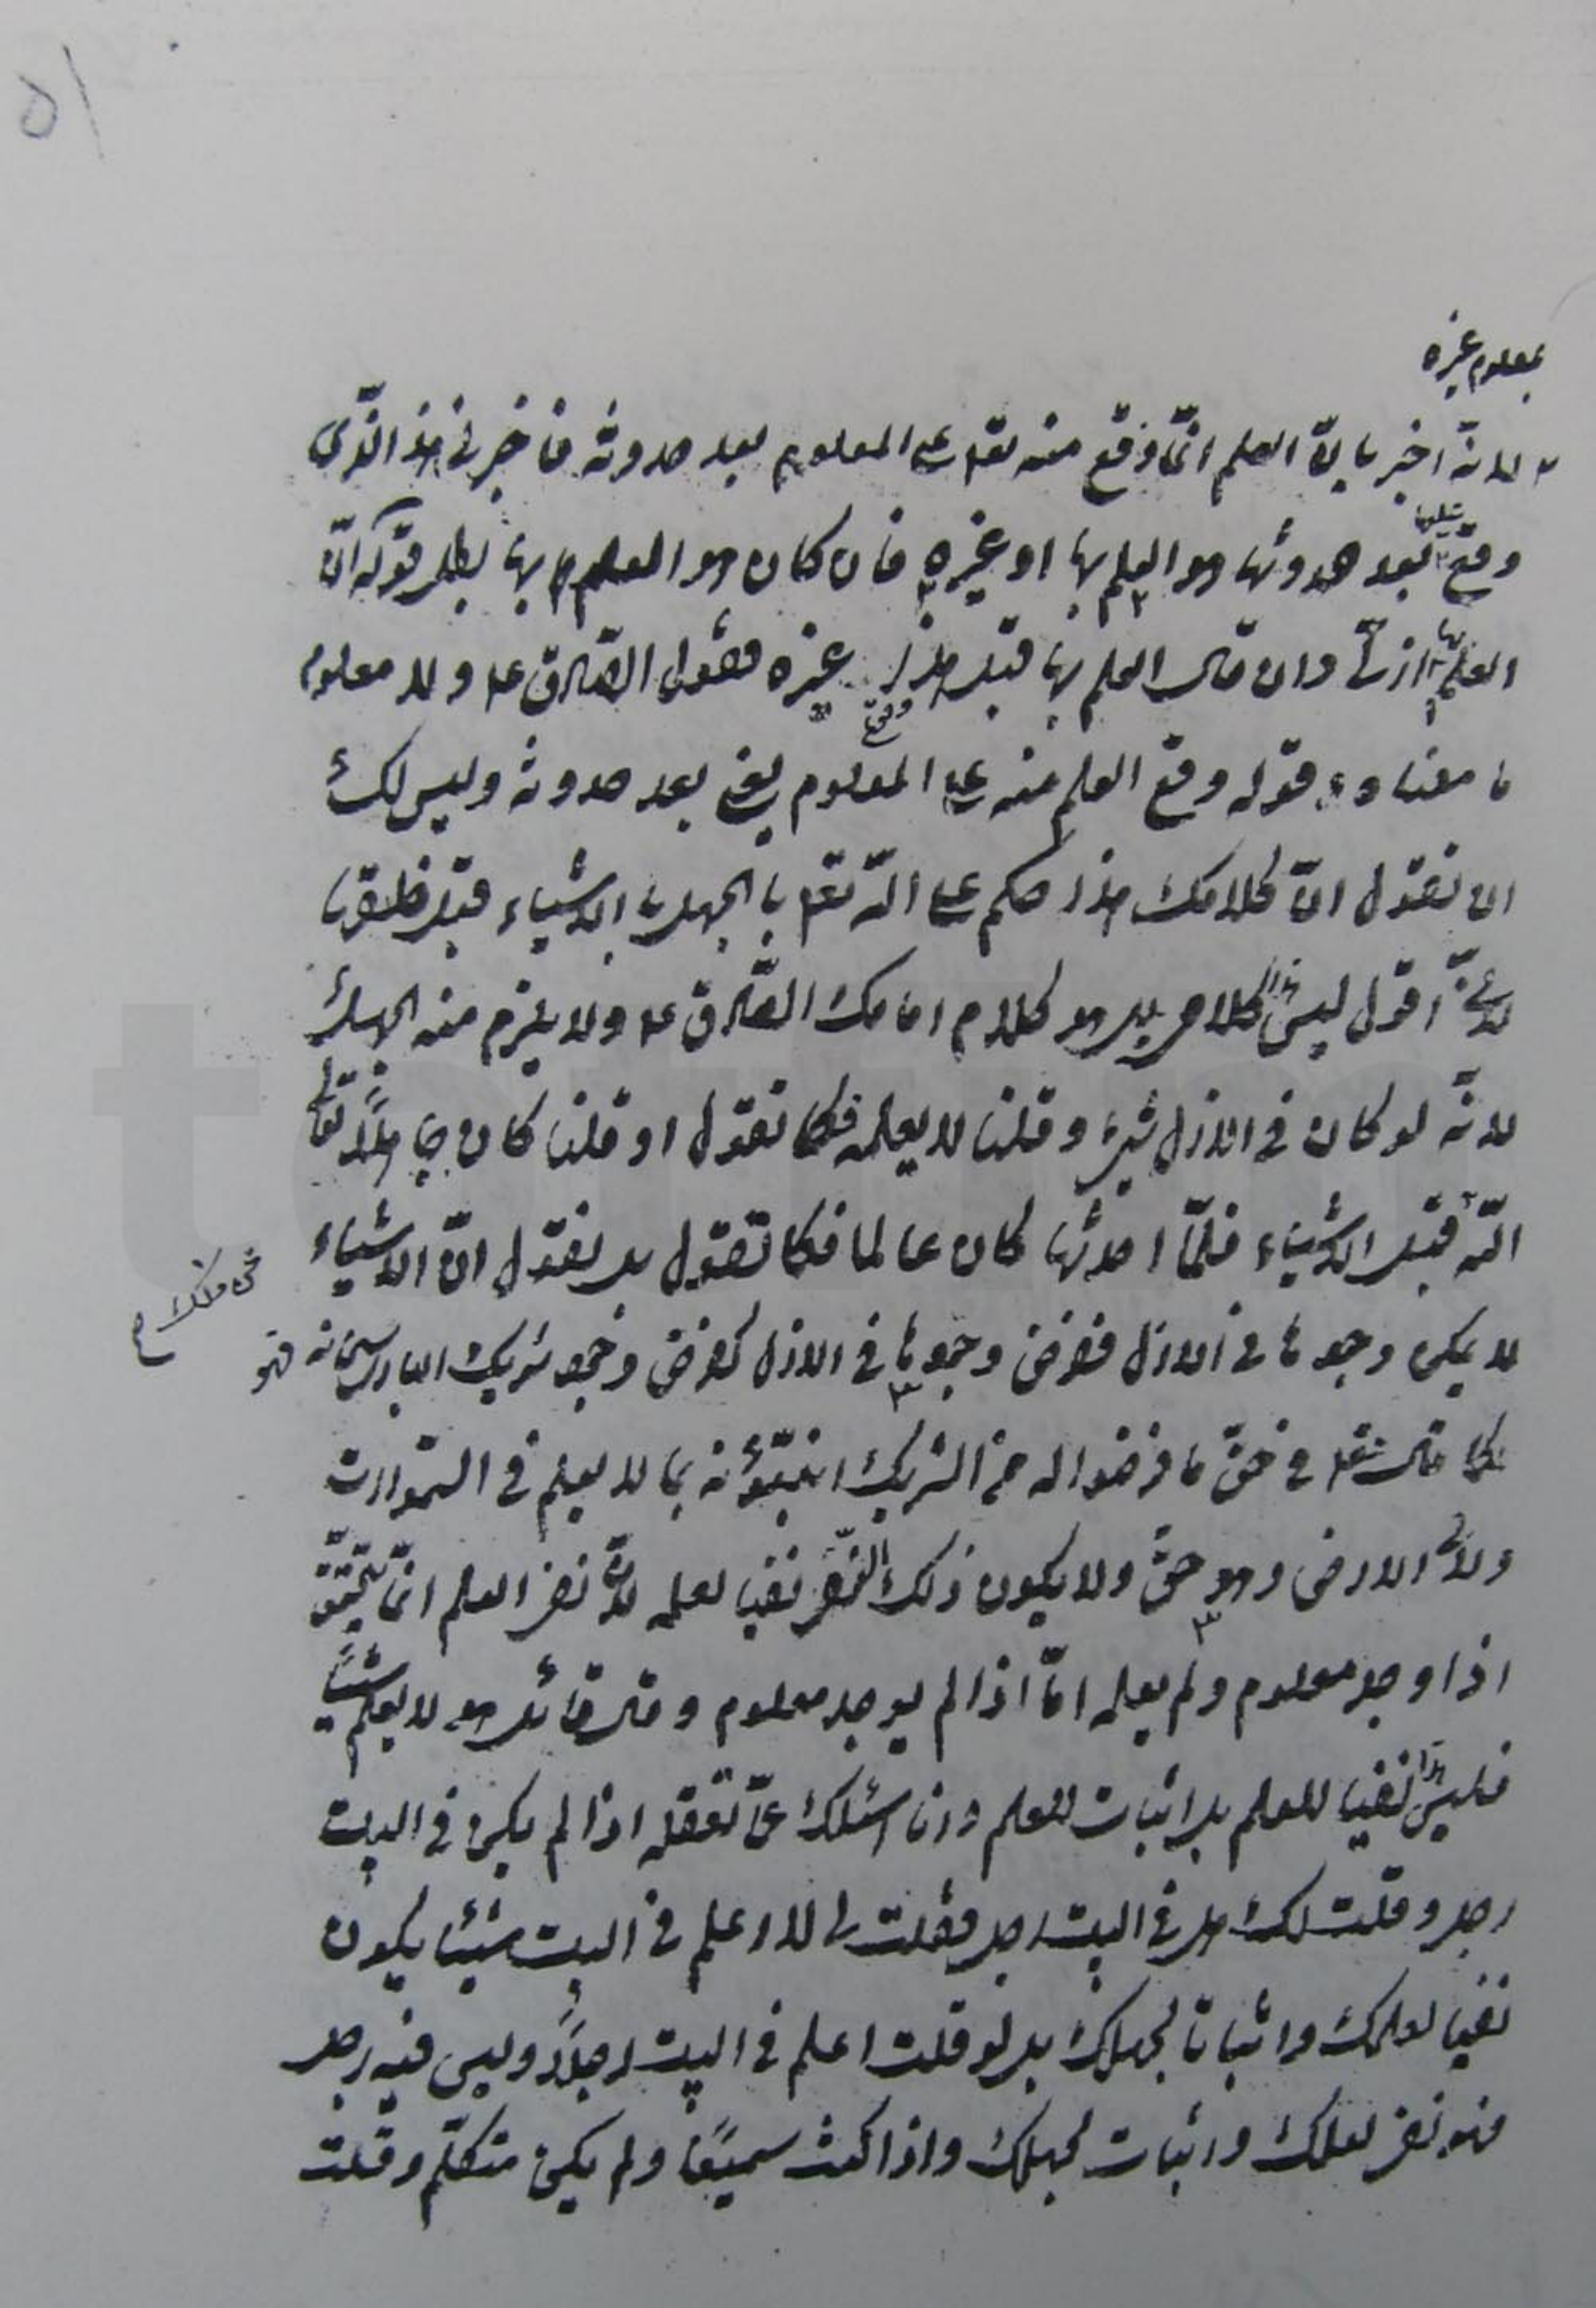 ٥١
بمعلوم غيره
لانّه اخبر بانّ العلم انّما وقع منه تعالى على المعلوم بعد حدوثه فاخبرنى هذا الّذى
وقع عليها بعد حدوثها هو العلم بها او غيره فان كان هو العلم بها بطل قوله انّ
العلم بها ازلىّ وان قال العلم بها قبل هذا وقع غيره فقول الصّادق ع ولا معلوم
ما معناه وقوله وقع العلم منه على المعلوم يعنى بعد حدوثه وليس لك
ان تقول انّ كلامك هذا حكم على اللّه تعالى بالجهل بالاشياء قبل خلقها
لانّى اقول ليس هذا كلامى بل هو كلام امامك الصّادق ع ولا يلزم منه الجهل
لانّه لو كان فى الازل شىء وقلنا لا يعلمه فكما تقول او قلنا كان جاهلاً تعالى
اللّه قبل الاشياء فلمّا احدثها كان عالما فكما تقول بل نقول انّ الاشياء
لا يمكن وجودها فى الازل ففرض وجودها فى الازل كفرض وجود شريك البارى سبحانه فهو
كما قال تعالى فى حقّ ما فرضوا له من الشريك اتنبّؤنه بما لا يعلم فى السّموات
ولا فى الارض وهو حقّ ولا يكون ذلك النّفى نفيا لعلمه لانّ نفى العلم انّما يتحقّق
اذا وجد معلوم ولم يعلمه امّا اذا لم يوجد معلوم وقال قائل هو لا يعلم شيئاً
فليس هذا نفيا للعلم بل اثبات للعلم وانا اسئلك عمّا تعقله اذا لم يكن فى البيت
رجل وقلت لك هل فى البيت رجل فقلت لى لا اعلم فى البيت شيئا يكون
نفيا لعلمك واثباتا لجهلك بل لو قلت اعلم فى البيت رجلاً وليس فيه رجل
فهو نفى لعلمك واثبات لجهلك واذا كنت سميعًا ولم يكن متكلّم وقلت